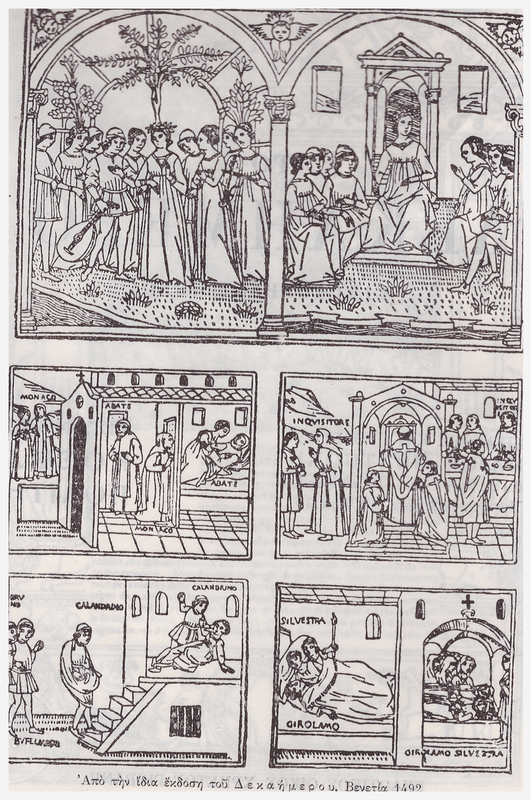 MONACO
ABATE
ABATE
MONACO
INQUISITORE
CALANDRINO
CALANDRINO
SILVESTRA
GIROLAMO
GIROLAMO SILVESTRA
Ἀπὸ τὴν ἴδια ἔκδοση τοῦ Δεκαήμερου. Βενετία 1492